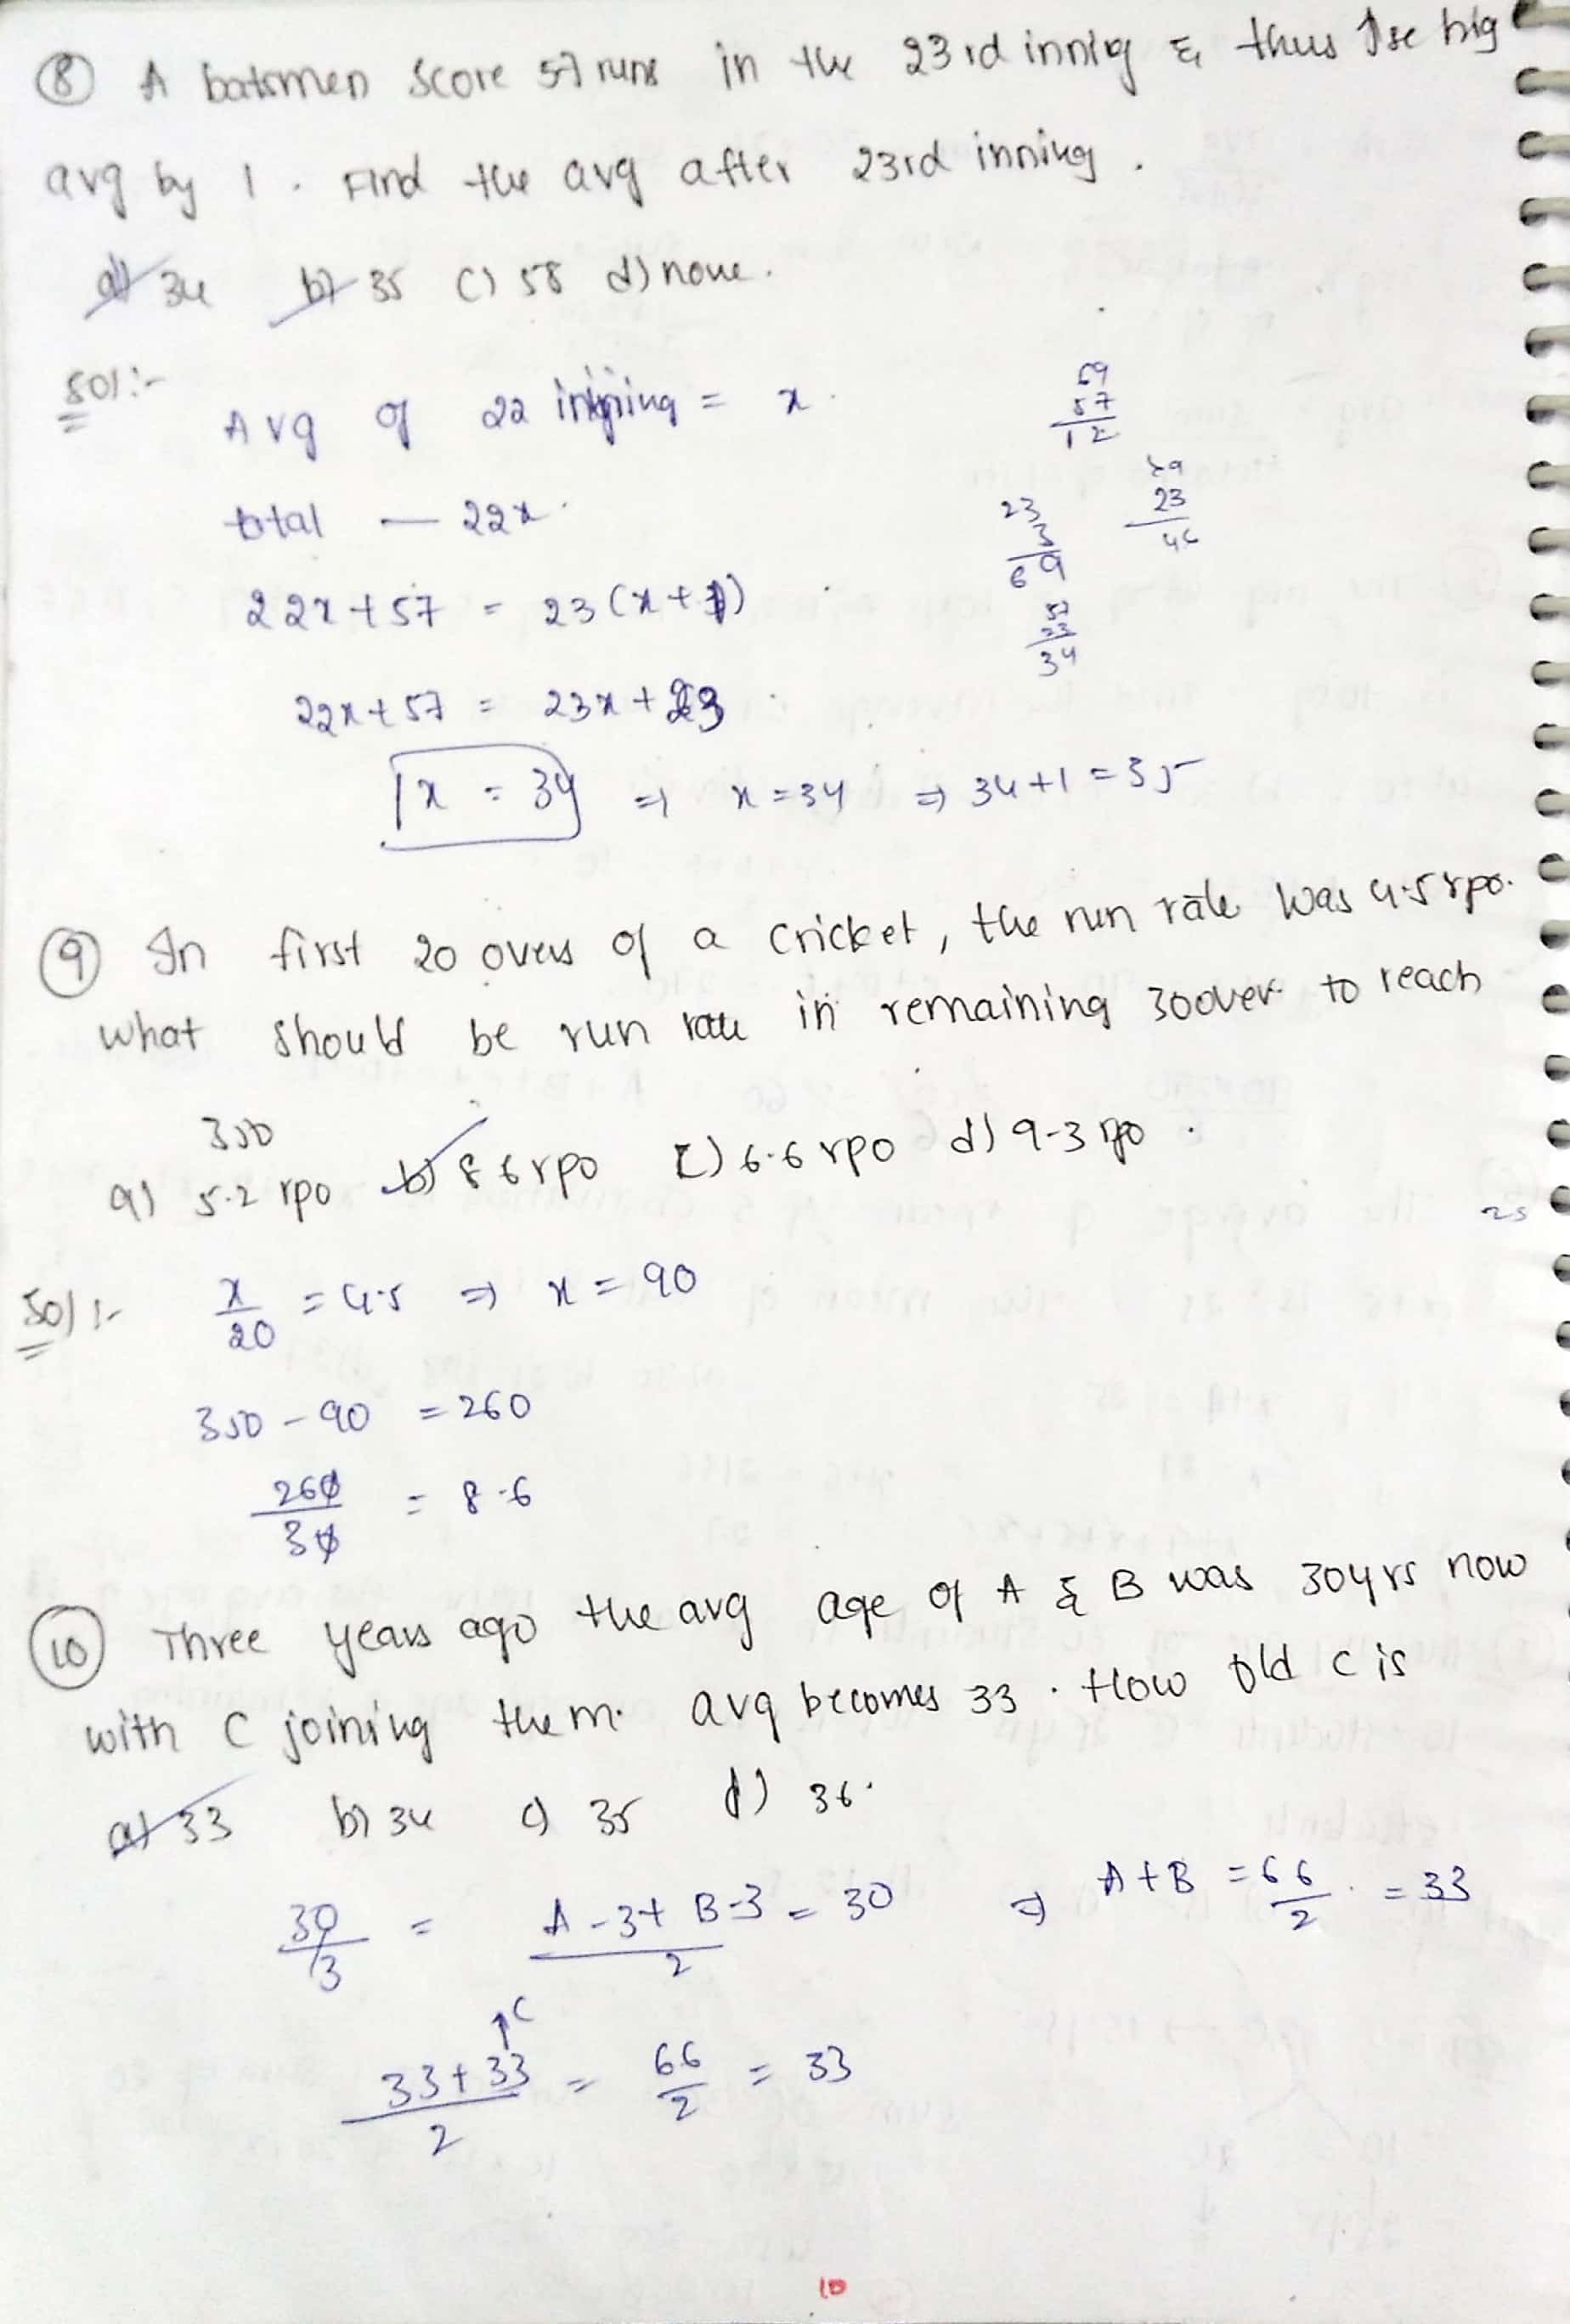 ⑧ A batsmen score 57 runs in the 23rd inning & thus ↑se hig
avg by 1 . Find the avg after 23rd inning .
a) 34 b) 35 c) 58 d) none .
Sol:-
Avg of 22 inning = x .
69
57
12
total — 22x .
23
3
69
23
46
22x + 57 = 23 (x + 1)
57
23
34
22x + 57 = 23x + 23
x = 34 ⇒ x = 34 ⇒ 34 + 1 = 35
⑨ In first 20 overs of a cricket, the run rate was 4.5 rpo.
what should be run rate in remaining 30 over to reach
350
a) 5.2 rpo b) 8.6 rpo c) 6.6 rpo d) 9.3 rpo .
25
Sol:- x/20 = 4.5 ⇒ x = 90
350 - 90 = 260
260/30 = 8.6
⑩ Three years ago the avg age of A & B was 30 yrs now
with C joining them. avg becomes 33 . How old C is
a) 33 b) 34 c) 35 d) 36 .
30/3 = A - 3 + B - 3/2 = 30 ⇒ A + B = 66/2 . = 33
↑C
33 + 33/2 = 66/2 = 33
10